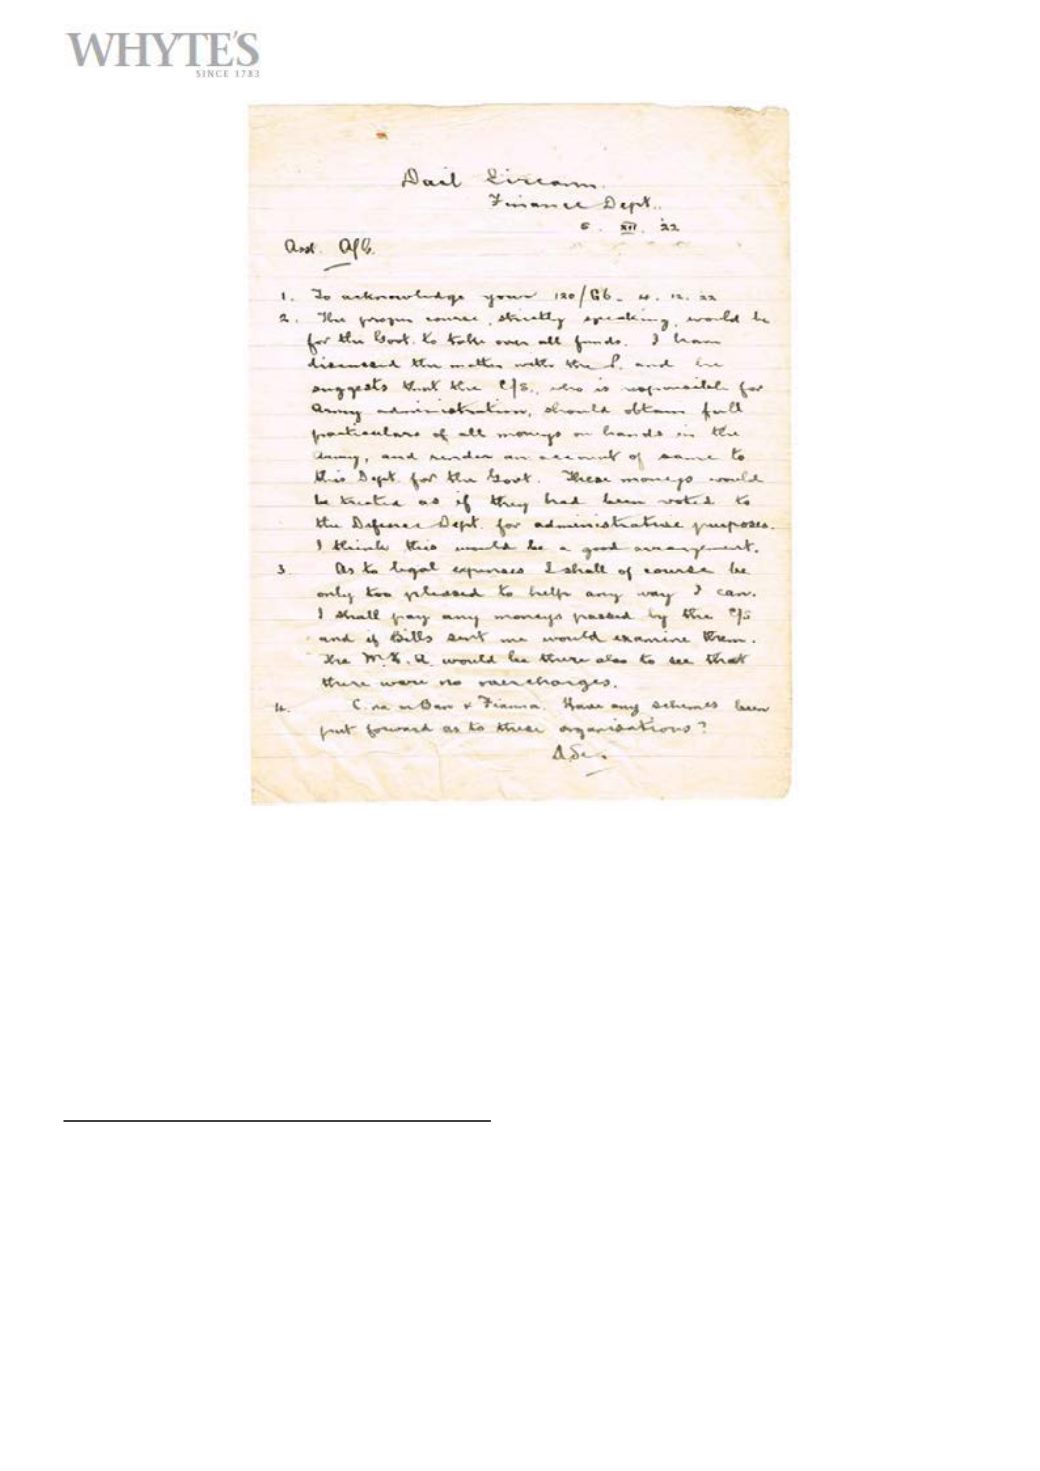 WHYTE'S
SINCE 1783
Dail Eireann.
Finance Dept.
6. XII. '22
Asst.
1. To acknowledge yours 120/GG. 4. 12. 22
2. The proper course, strictly speaking, would be
for the Govt. to take over all funds. I have
discussed the matter with the P. and he
suggests that the C/S., who is responsible for
Army administration, should obtain full
particulars of all moneys on hands in the
Army, and render an account of same to
this Dept. for the Govt. These moneys would
be treated as if they had been voted to
the Defence Dept. for administrative purposes.
I think this would be a good arrangement.
3. As to legal expenses I shall of course be
only too pleased to help any way I can.
I shall pay any moneys passed by the C/S
and if Bills sent me would examine them.
The would be there also to see that
there were no overcharges.
4. C. na mBan & Fianna. Have any schemes been
put forward as to these organisations?